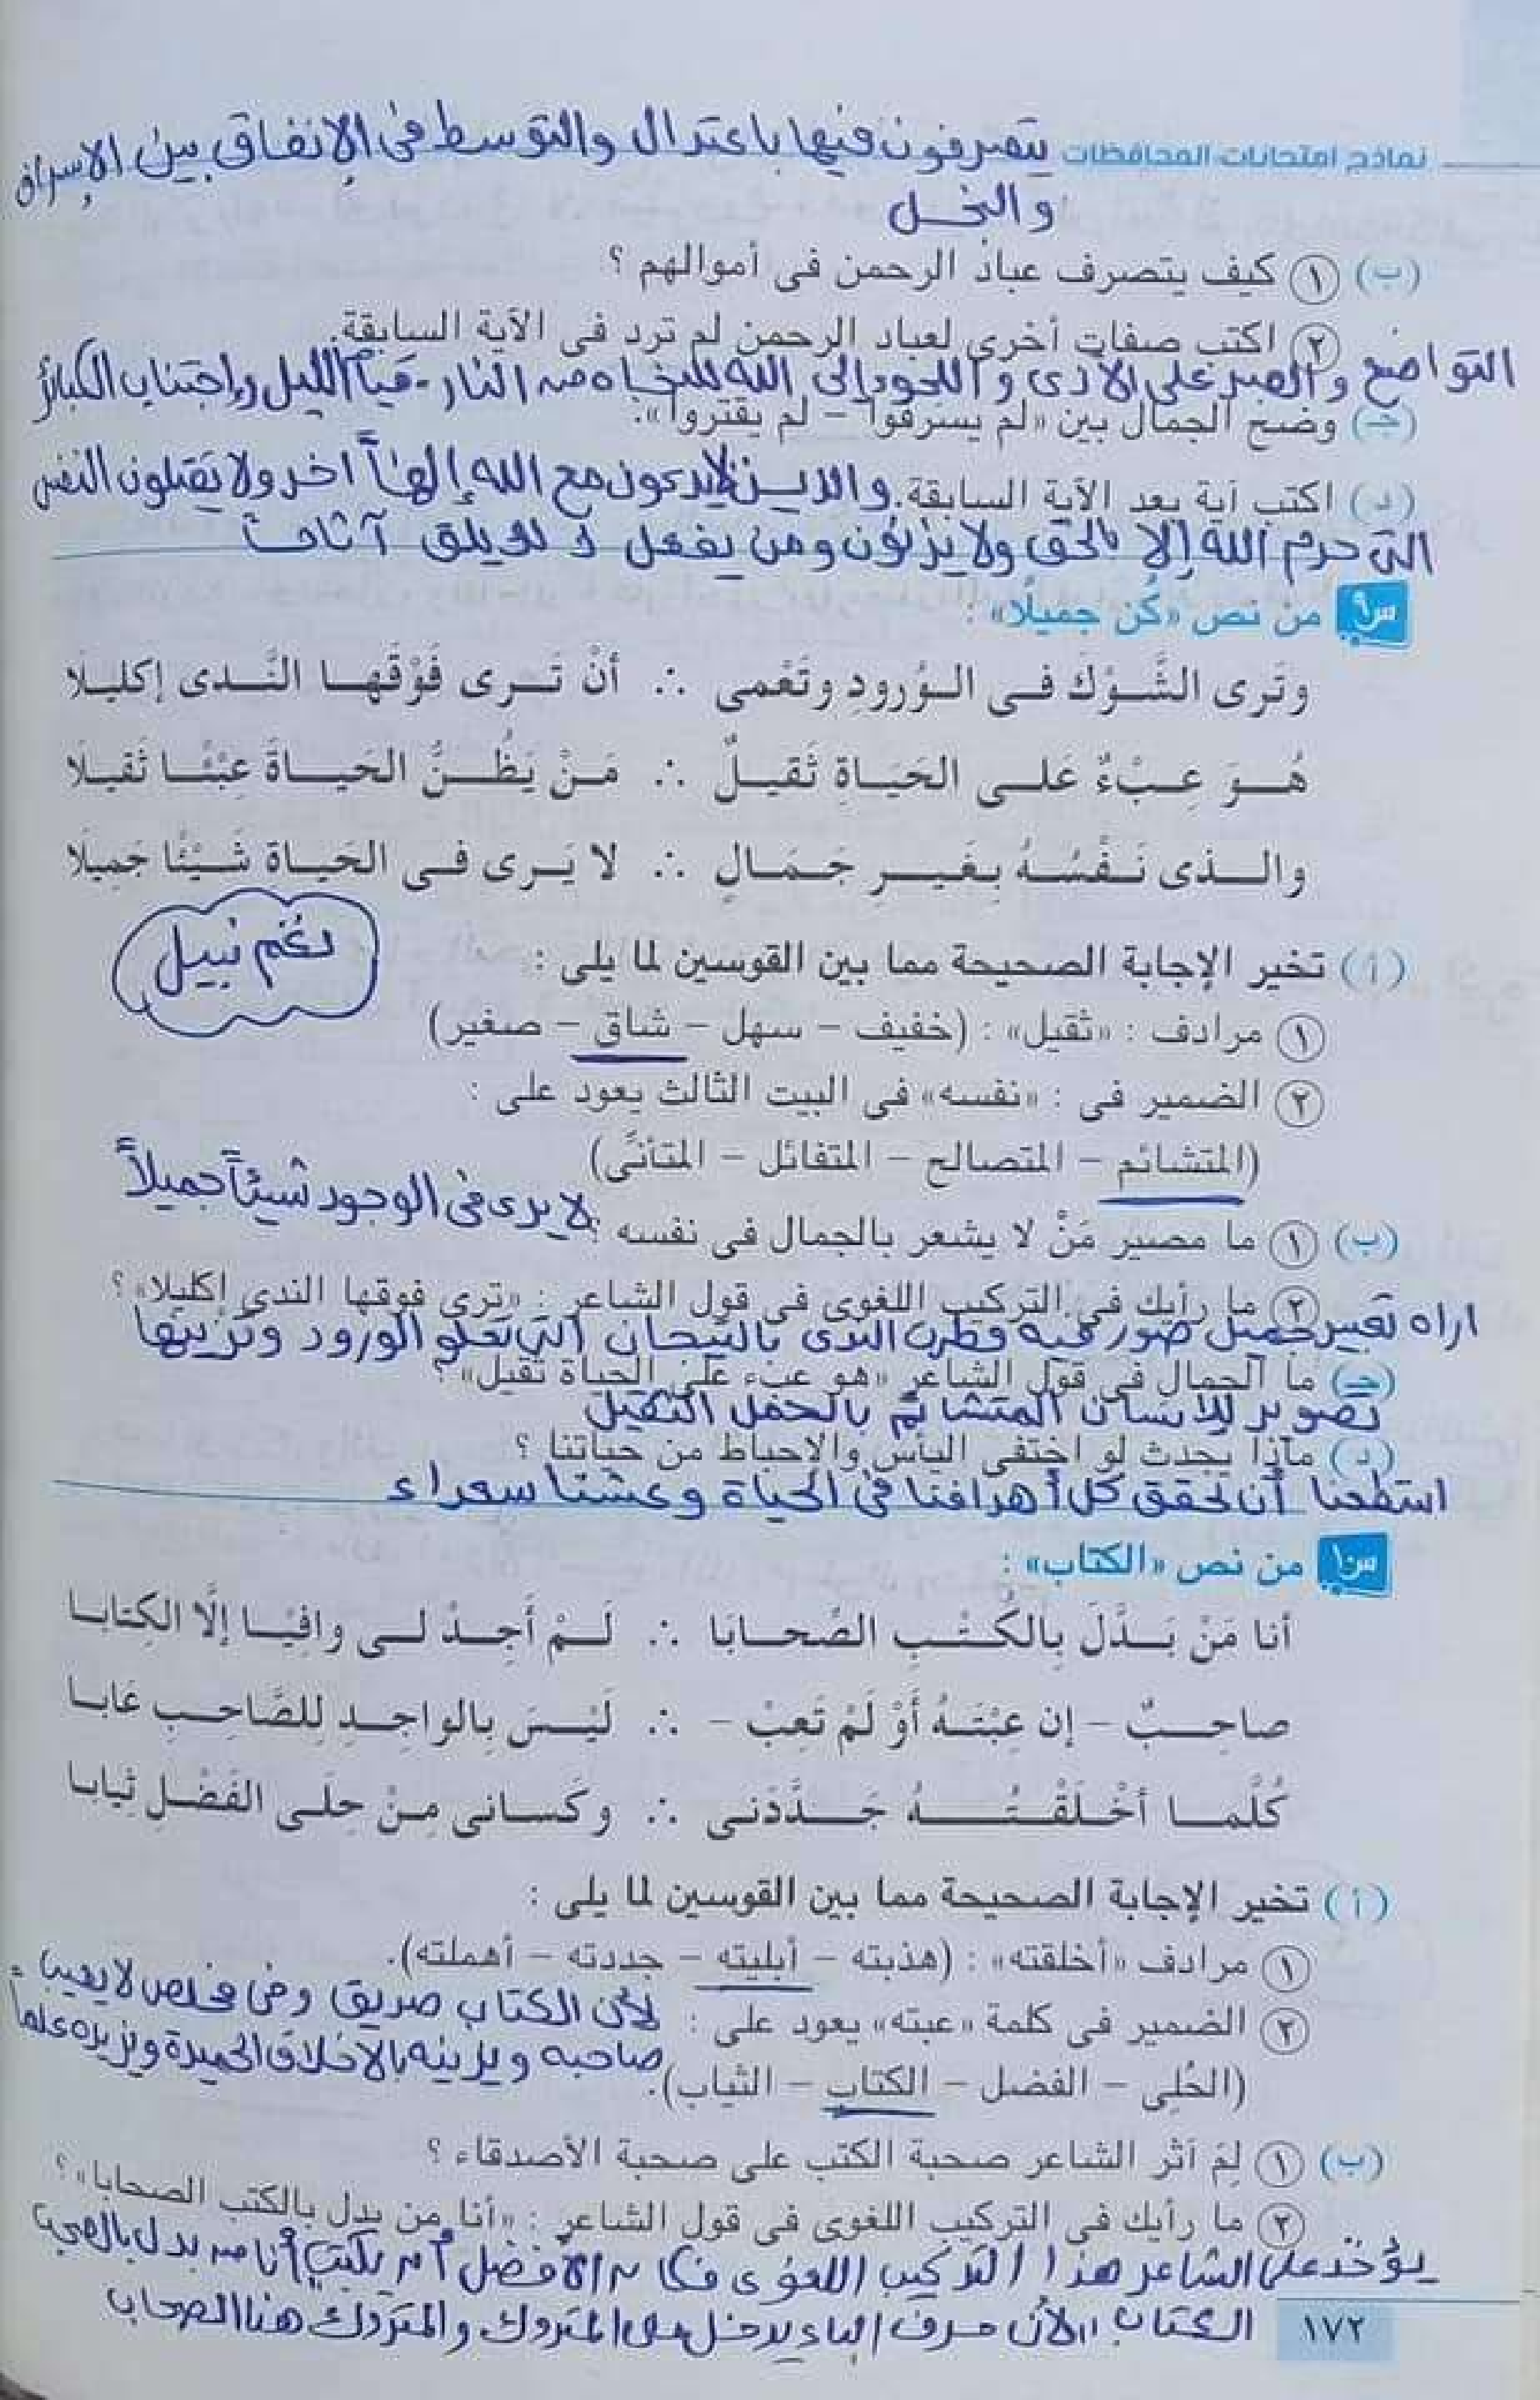 نماذج امتحانات المحافظات يتصرفون فيها باعتدال والتوسط فى الإنفاق بين الإسراف
والبخل
(ب) ١ كيف يتصرف عبادُ الرحمن فى أموالهم ؟
٢ اكتب صفات أخرى لعباد الرحمن لم ترد فى الآية السابقة.
التواضع والصبر على الأذى و اللجوء إلى الله للنجاه من النار - قيام الليل وإجتناب الكبائر
(جـ) وضح الجمال بين «لم يسرفوا – لم يقتروا».
(د) اكتب آية بعد الآية السابقة. والذين لا يدعون مع الله إلهاً اخر ولا يقتلون النفس
التى حرم الله إلا بالحق ولا يزنون ومن يفعل ذلك يلق آثاماً
س٩ من نص «كُن جميلًا» :
وتَرى الشَّوْكَ فى الوُرودِ وتَعْمى ∴ أنْ تَرى فَوْقَها النَّدى إكليلَا
هُوَ عِبْءٌ عَلى الحَيَاةِ ثَقيلٌ ∴ مَنْ يَظُنُّ الحَياةَ عِبْئًا ثَقيلَا
والذى نَفْسُهُ بِغَيرِ جَمَالٍ ∴ لا يَرى فى الحَياة شَيْئًا جَمِيلَا
(أ) تخير الإجابة الصحيحة مما بين القوسين لما يلى :
نغم نبيل
١ مرادف : «ثقيل» : (خفيف – سهل – شاق – صغير)
٢ الضمير فى : «نفسه» فى البيت الثالث يعود على :
(المتشائم – المتصالح – المتفائل – المتأنِّى)
(ب) ١ ما مصير مَنْ لا يشعر بالجمال فى نفسه ؟ لا يرى فى الوجود شيئاً جميلاً
٢ ما رأيك فى التركيب اللغوى فى قول الشاعر : «ترى فوقها الندى إكليلا» ؟
اراه تعبير جميل صور فيه قطرات الندى بالتيجان التى تعلو الورود وتزينها
(جـ) ما الجمال فى قول الشاعر «هو عبء على الحياة ثقيل» ؟
تصوير للانسان المتشائم بالحمل الثقيل
(د) ماذا يحدث لو اختفى اليأس والإحباط من حياتنا ؟
استطعنا أن نحقق كل أهدافنا فى الحياة وعشنا سعداء
س١٠ من نص «الكتاب» :
أنا مَنْ بَدَّلَ بِالكُتْبِ الصِّحابَا ∴ لَمْ أَجِدْ لى وافيًا إلَّا الكِتابا
صاحِبٌ – إن عِبْتَهُ أَوْ لَمْ تَعِبْ – ∴ لَيْسَ بِالواجِدِ لِلصَّاحِبِ عَابا
كُلَّما أخْلَقْتُهُ جَدَّدَنى ∴ وكَسانى مِنْ حِلَى الفَضْلِ ثِيابا
(أ) تخير الإجابة الصحيحة مما بين القوسين لما يلى :
١ مرادف «أخلقته» : (هذبته – أبليته – جددته – أهملته).
٢ الضمير فى كلمة «عبته» يعود على : لأن الكتاب صديق وفى مخلص لا يعيب
(الحُلِى – الفضل – الكتاب – الثياب). صاحبه ويزينه بالاخلاق الحميدة ويزيده علما
(ب) ١ لِمَ آثر الشاعر صحبة الكتب على صحبة الأصدقاء ؟
٢ ما رأيك فى التركيب اللغوى فى قول الشاعر : «أنا من بدل بالكتب الصحابا» ؟
يؤخذ على الشاعر هذا التركيب اللغوى فكان الأفضل أن يكتب أنا من بدل بالصحب
الكتاب لأن حرف الباء يدخل على المتروك والمتروك هنا الصحاب
١٧٢